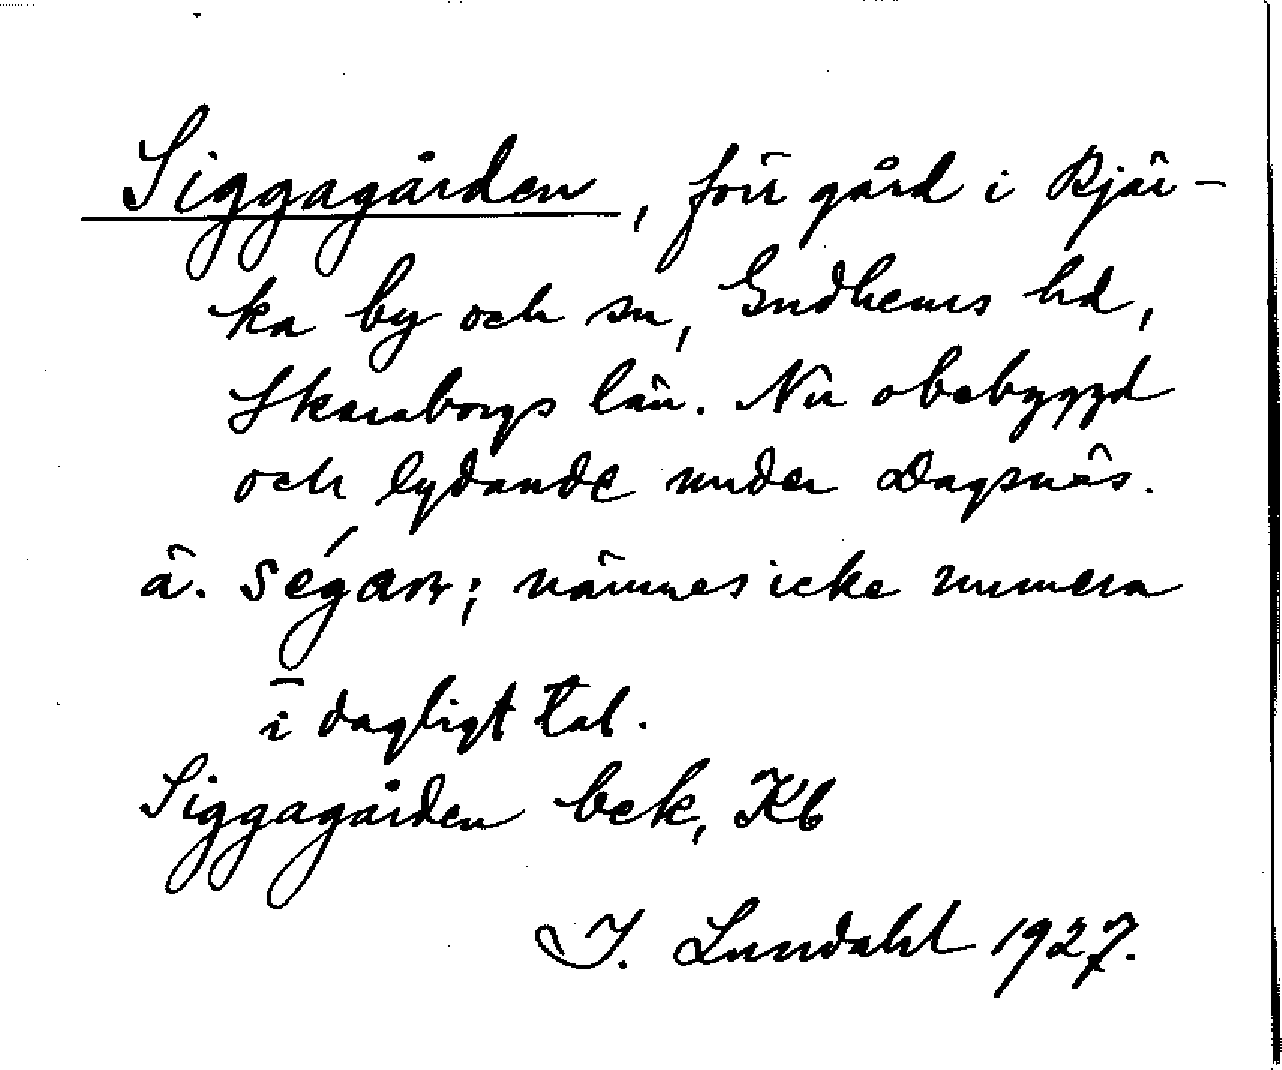 Siggagården, förr gård i Bjär-
ka by och sn, Gudhems hd,
Skaraborgs län. Nu obebyggd
och lydande under Dagsnäs.
ä. ségaɳ; nämnes icke numera
i dagligt tal.
Siggagården bek, Kb
I. Lundahl 1927.